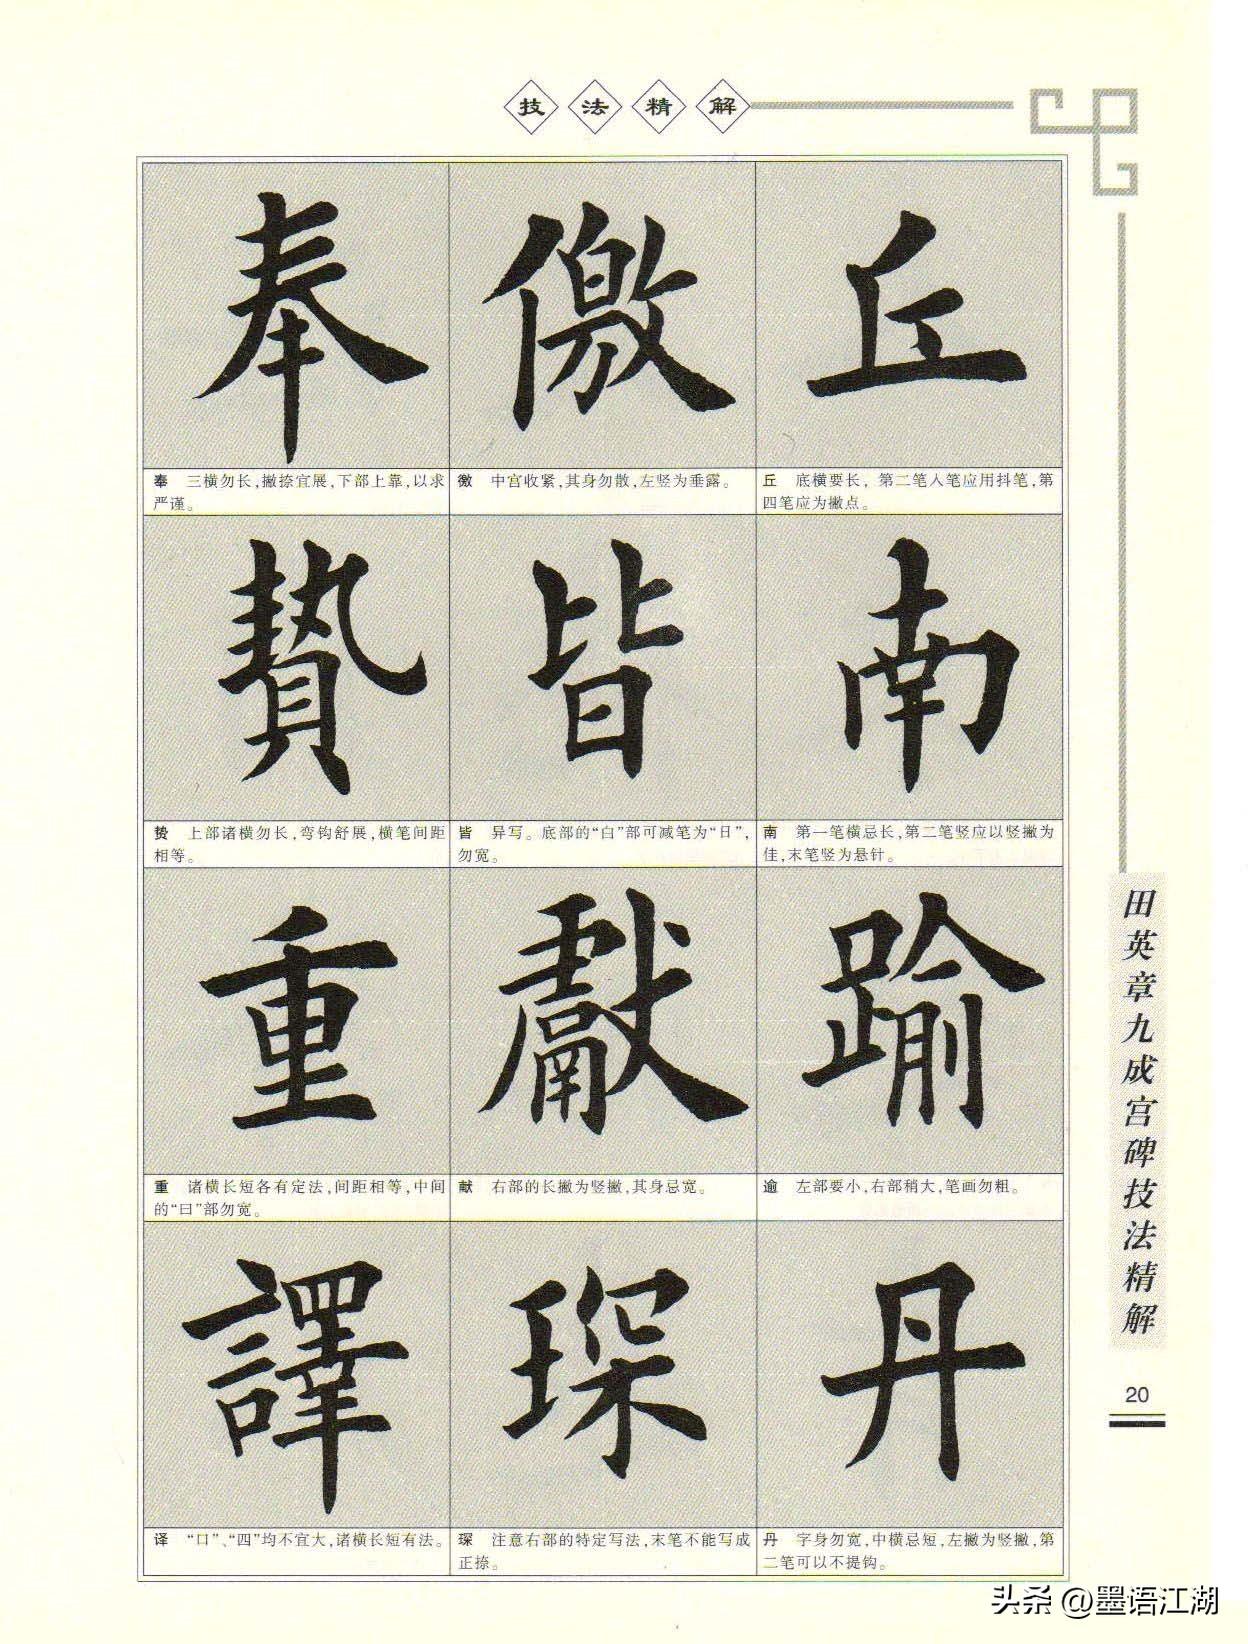 技法精解
丘
丘 底横要长, 第二笔人笔应用抖笔,第
四笔应为撇点。
南
南 第一笔横忌长,第二笔竖应以竖撇为
佳,末笔竖为悬针。
踰
逾 左部要小,右部稍大,笔画勿粗。
丹
丹 字身勿宽,中横忌短,左撇为竖撇,第
二笔可以不提钩。
儌
徼 中宫收紧,其身勿散,左竖为垂露。
皆
皆 异写。底部的“白”部可减笔为“日”,
勿宽。
獻
献 右部的长撇为竖撇,其身忌宽。
琛
琛 注意右部的特定写法,末笔不能写成
正捺。
奉
奉 三横勿长,撇捺宜展,下部上靠,以求
严谨。
贄
贽 上部诸横勿长,弯钩舒展,横笔间距
相等。
重
重 诸横长短各有定法,间距相等,中间
的“曰”部勿宽。
譯
译 “口”、“四”均不宜大,诸横长短有法。
田英章九成宫碑技法精解
20
头条 @墨语江湖